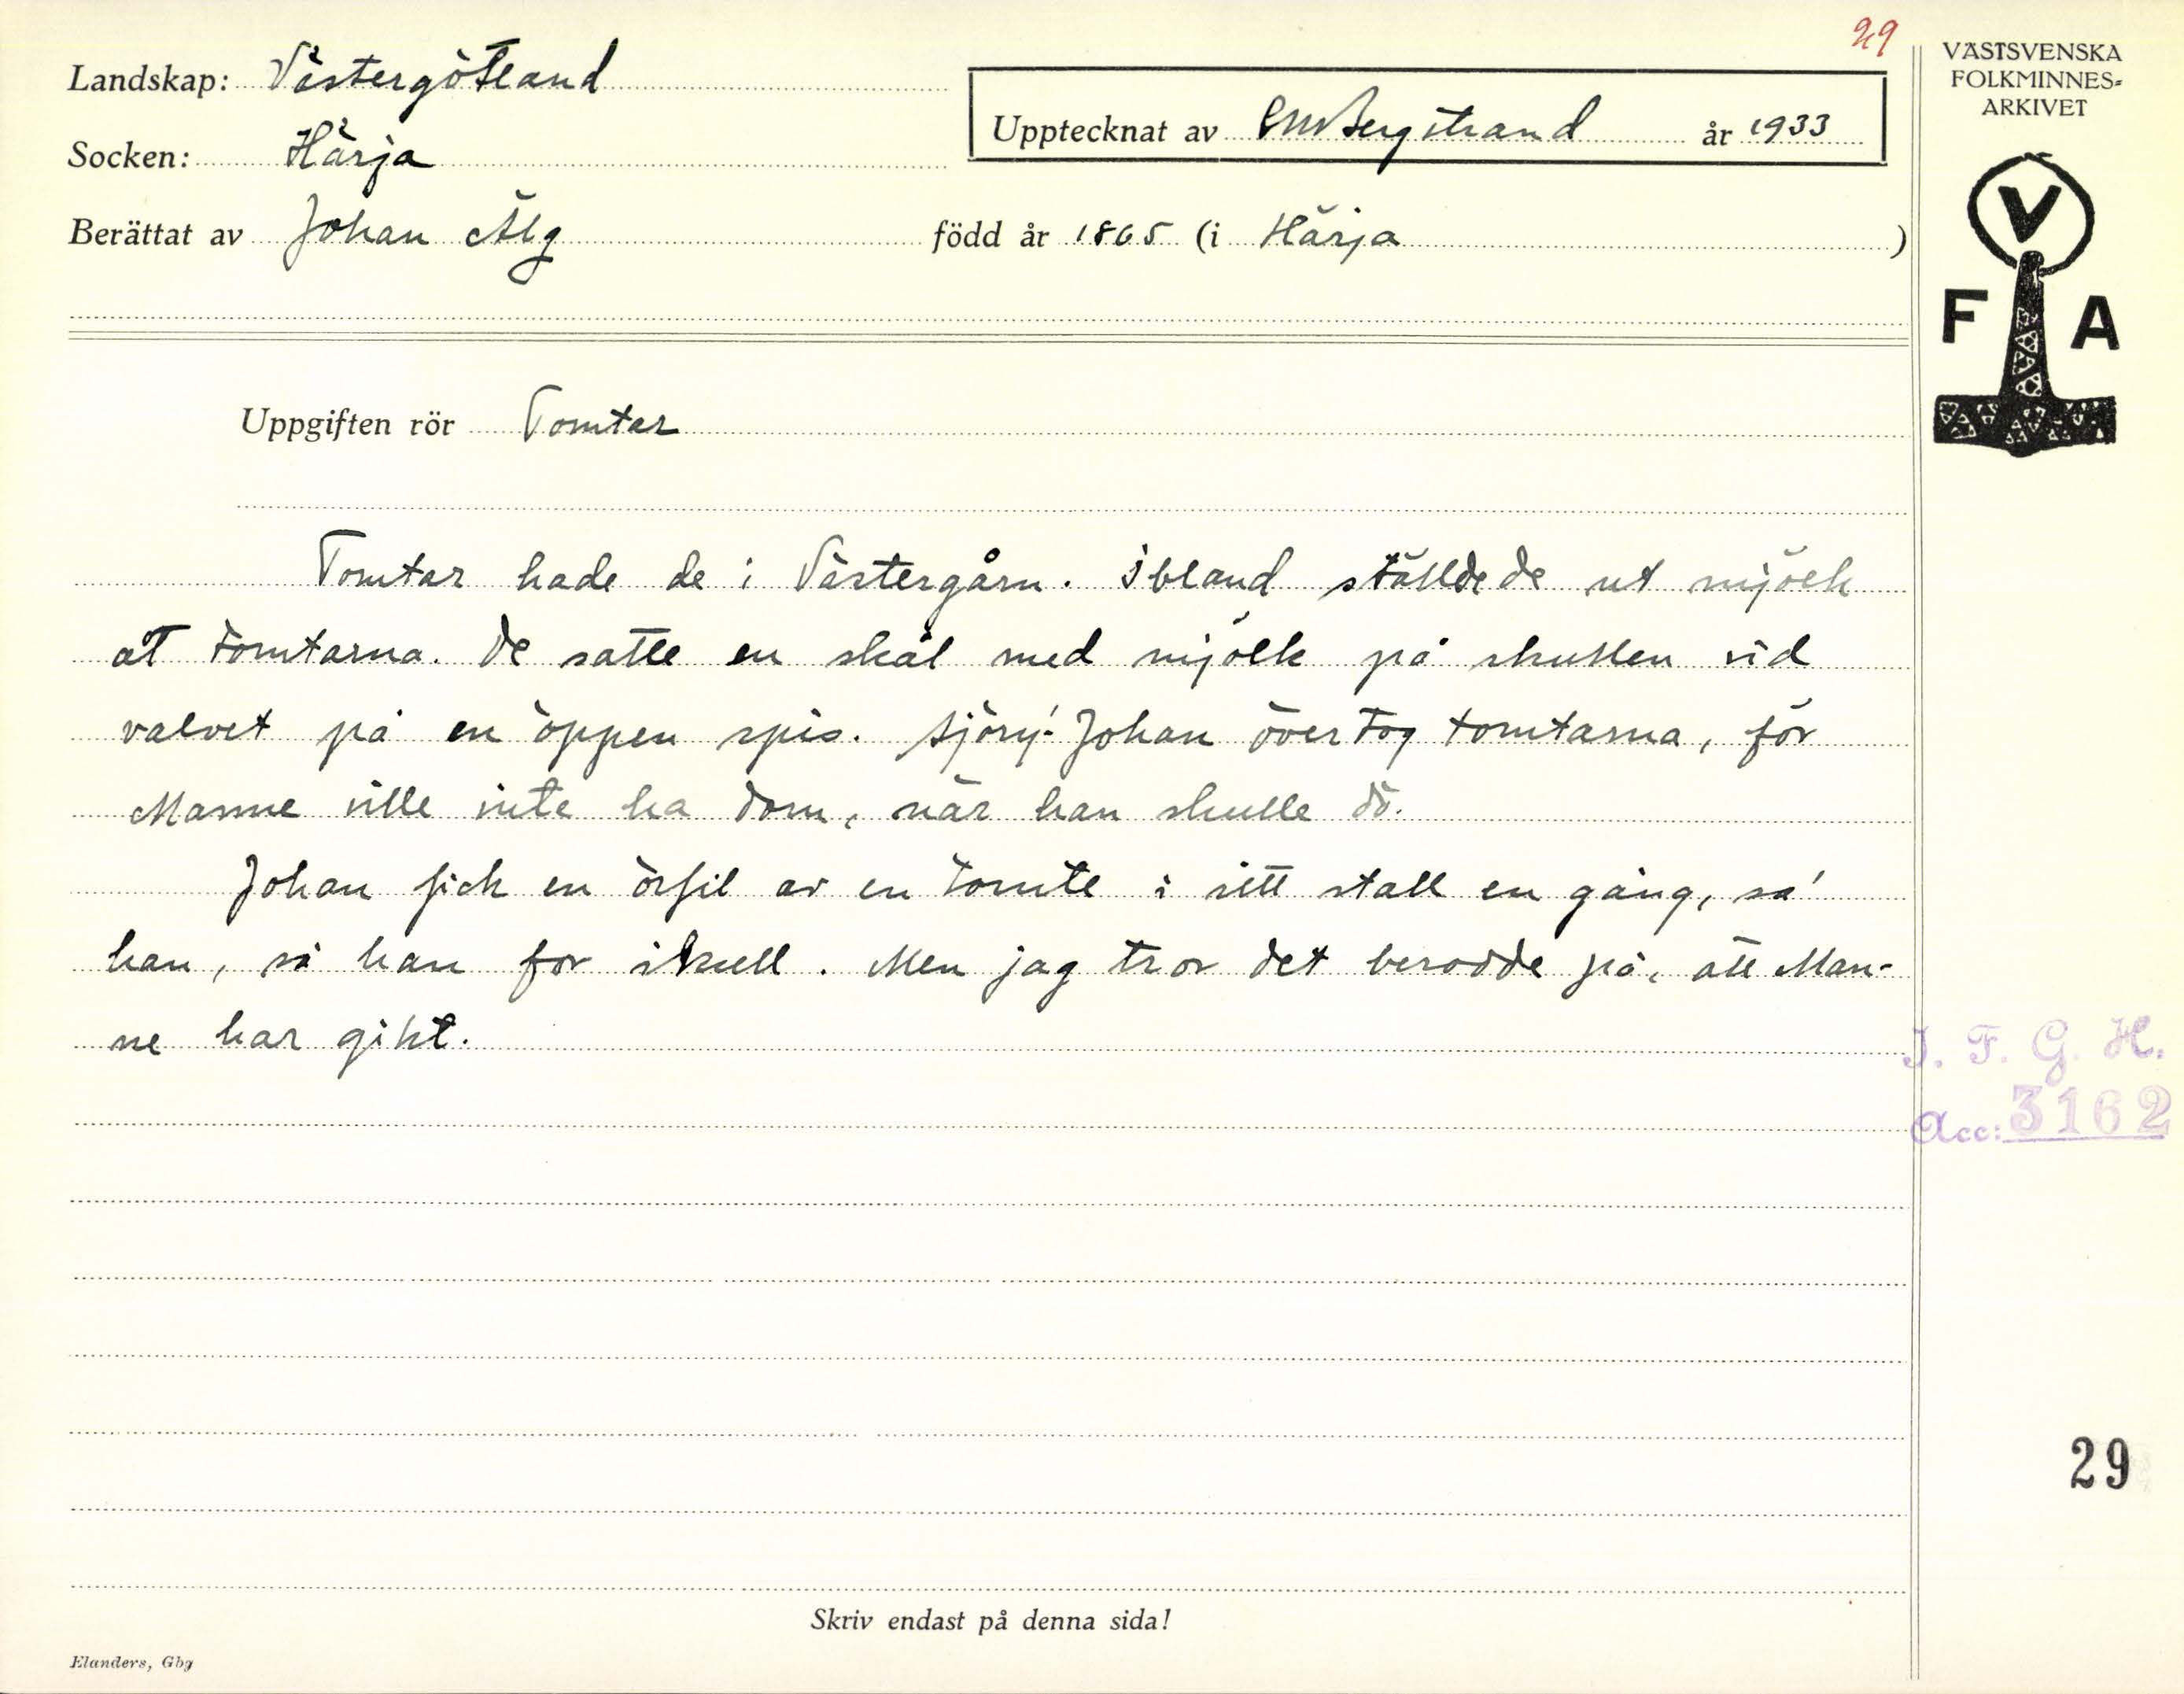 29
VÄSTSVENSKA
FOLKMINNES-
ARKIVET
Landskap: Västergötland
Upptecknat av CM Bergstrand år 1933
Socken: Härja
Berättat av Johan Älg född år 1865 (i Härja )
V
F A
Uppgiften rör Tomtar
Tomtar hade de i Västergårn. Ibland ställde de ut mjölk
åt tomtarna. De satte en skål med mjölk på skullen vid
valvet på en öppen spis. Johan övertog tomtarna, för
Manne ville inte ha dom, när han skulle dö.
Johan fick en örfil av en tomte i sitt stall en gång, sa'
han, så han for ikull. Men jag tror det berodde på, att Man-
ne har gikt.
I. F. G. H.
Acc: 3162
29
Skriv endast på denna sida!
Elanders, Gbg